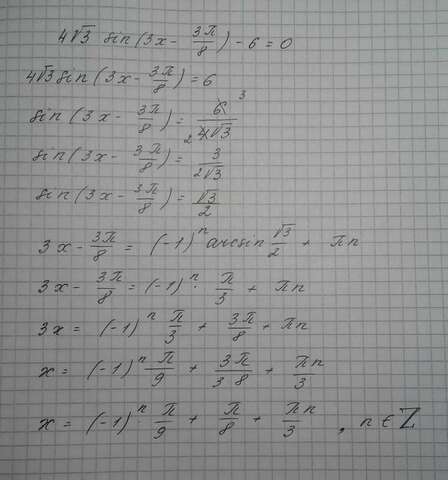 4√3 sin(3x - 3π/8) - 6 = 0
4√3 sin(3x - 3π/8) = 6
sin(3x - 3π/8) = 6 3 / 2 4√3
sin(3x - 3π/8) = 3/2√3
sin(3x - 3π/8) = √3/2
3x - 3π/8 = (-1)ⁿ arcsin √3/2 + πn
3x - 3π/8 = (-1)ⁿ · π/3 + πn
3x = (-1)ⁿ π/3 + 3π/8 + πn
x = (-1)ⁿ π/9 + 3π/3·8 + πn/3
x = (-1)ⁿ · π/9 + π/8 + πn/3 , n ∈ Z